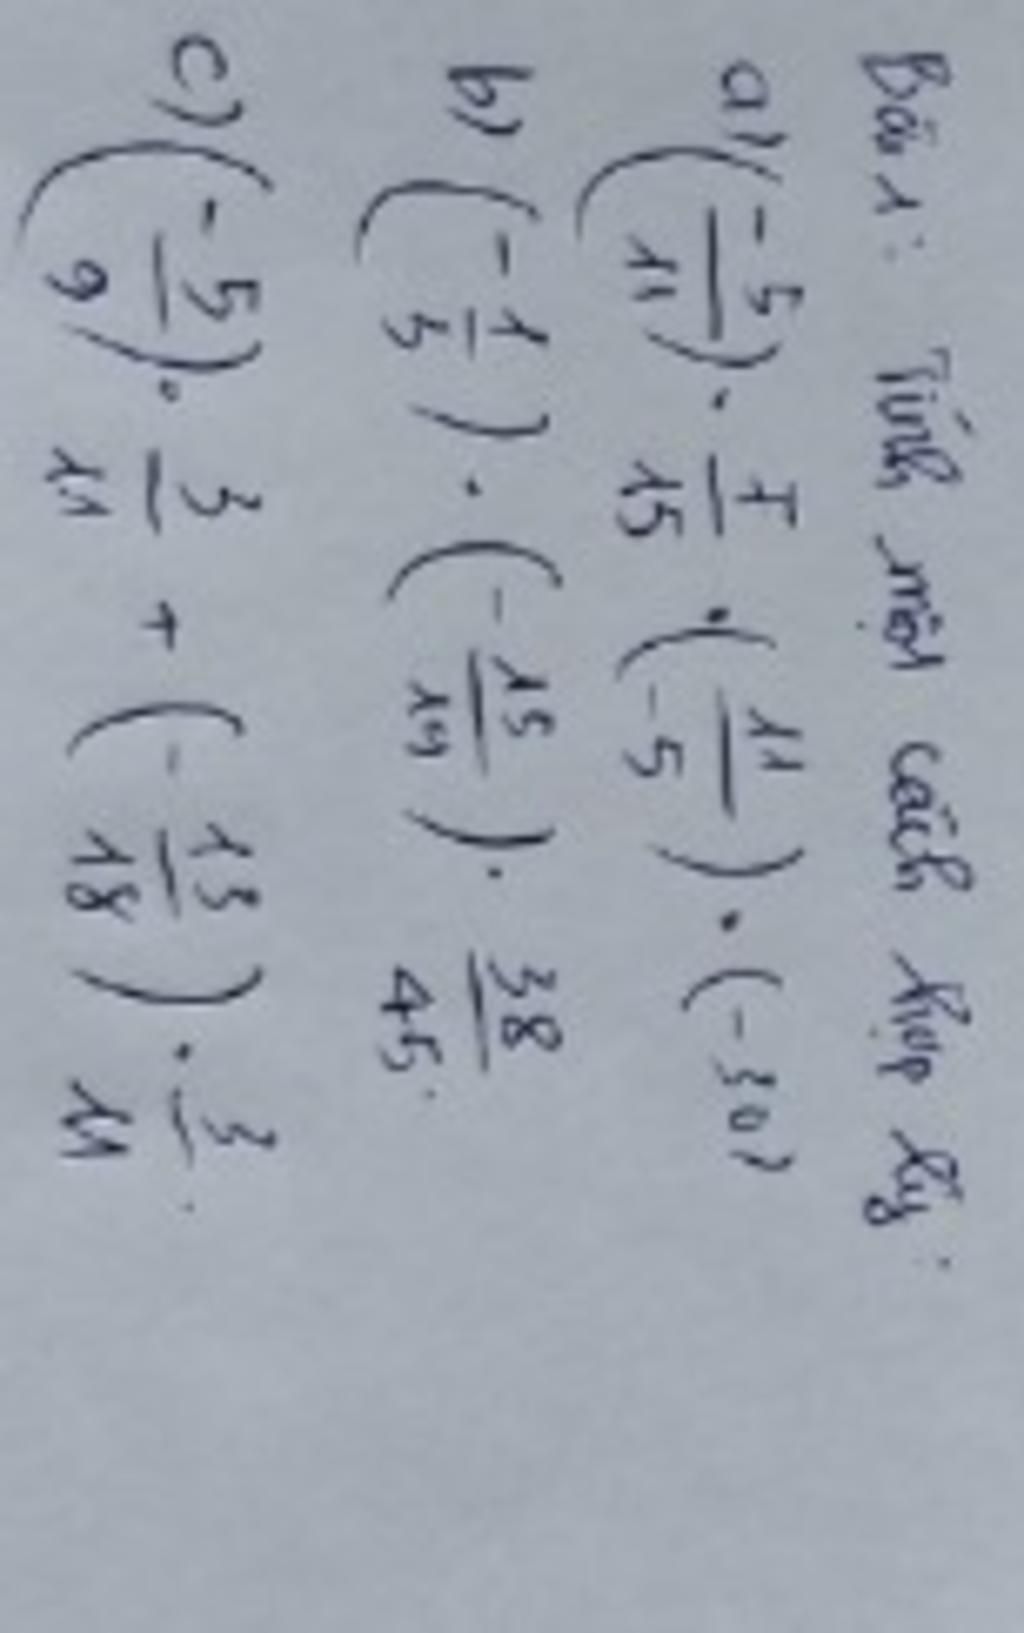 Bài 1: Tính một cách hợp lý.
a) (-5/11) . 7/15 . (11/-5) . (-30)
b) (-1/3) . (-15/19) . 38/45.
c) (-5/9) . 3/11 + (-13/18) . 3/11.